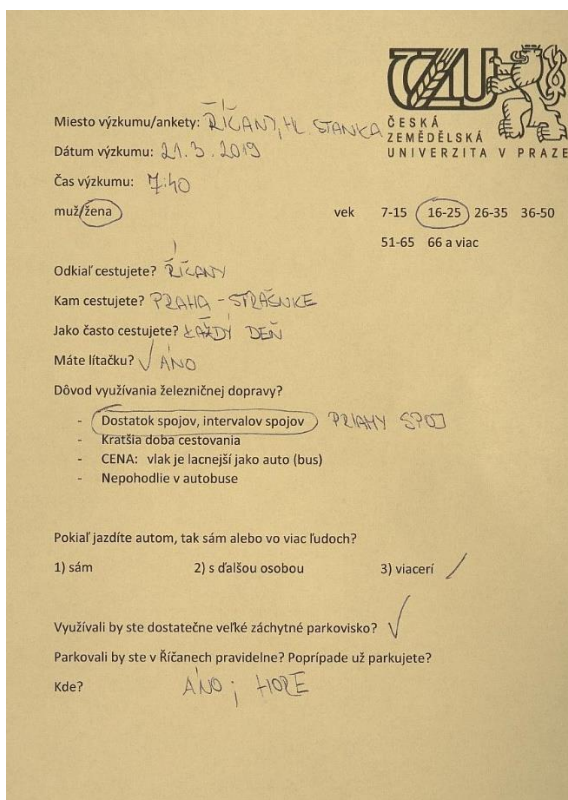 ČESKÁ
ZEMĚDĚLSKÁ
UNIVERZITA V PRAZE
Miesto výzkumu/ankety: ŘÍČANY, HL. STANICA
Dátum výzkumu: 21.3.2019
Čas výzkumu: 7:40
muž/žena vek 7-15 16-25 26-35 36-50
51-65 66 a viac
Odkiaľ cestujete? ŘÍČANY
Kam cestujete? PRAHA - STRAŠNICE
Jako často cestujete? KAŽDÝ DEŇ
Máte lítačku? ÁNO
Dôvod využívania železničnej dopravy?
- Dostatok spojov, intervalov spojov PRIAMY SPOJ
- Kratšia doba cestovania
- CENA: vlak je lacnejší jako auto (bus)
- Nepohodlie v autobuse
Pokiaľ jazdíte autom, tak sám alebo vo viac ľudoch?
1) sám 2) s ďalšou osobou 3) viacerí
Využívali by ste dostatečne veľké záchytné parkovisko?
Parkovali by ste v Říčanech pravidelne? Poprípade už parkujete?
Kde? ÁNO; HORE